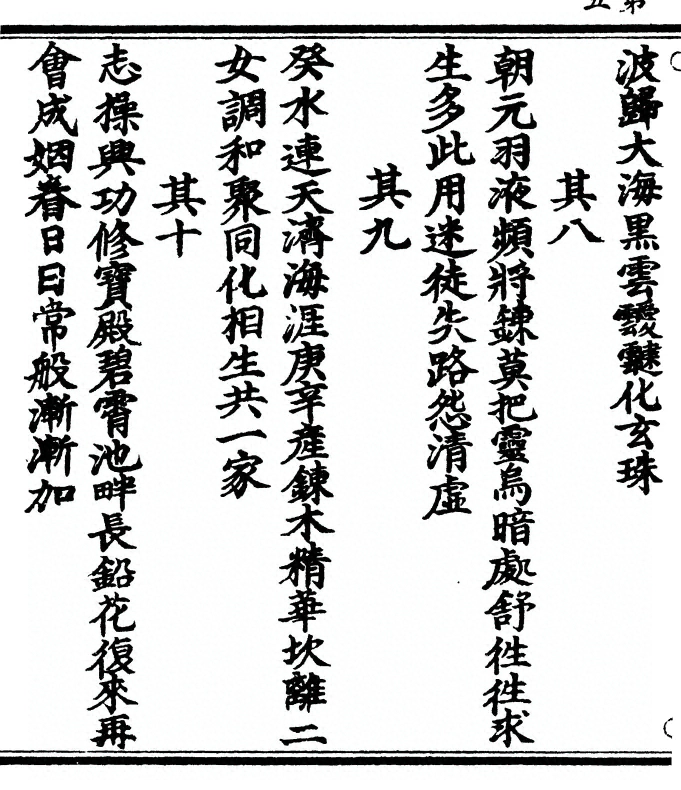 波歸大海黒雲靉靆化玄珠
其八
朝元羽液頻將鍊莫把靈烏暗處舒徃徃求
生多此用迷徒失路怨清虛
其九
癸水連天濟海涯庚辛產鍊木精華坎離二
女調和聚同化相生共一家
其十
志操興功修寶殿碧霄池畔長鉛花復來再
會成姻眷日日常般漸漸加